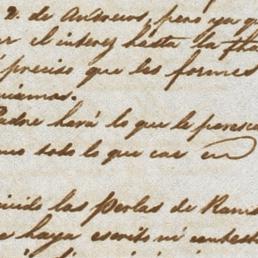 D. de Andrews, pero ya qu
ar el interes hasta la fha
é preciso que les formes
uiamos.
Padre hará lo que le paresca
mo todo lo que cae en
cibido las Perlas de Ram
e haya escrito ni contest